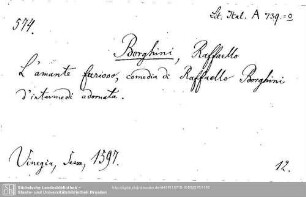 Lit. Ital. A 739.=o
574.
Borghini, Raffaello
L'amante furioso, comedia di Raffaello Borghini
d'intermedi adornata.
Venezia, Sessa, 1597.
12.
Sächsische Landesbibliothek –
Staats- und Universitätsbibliothek Dresden